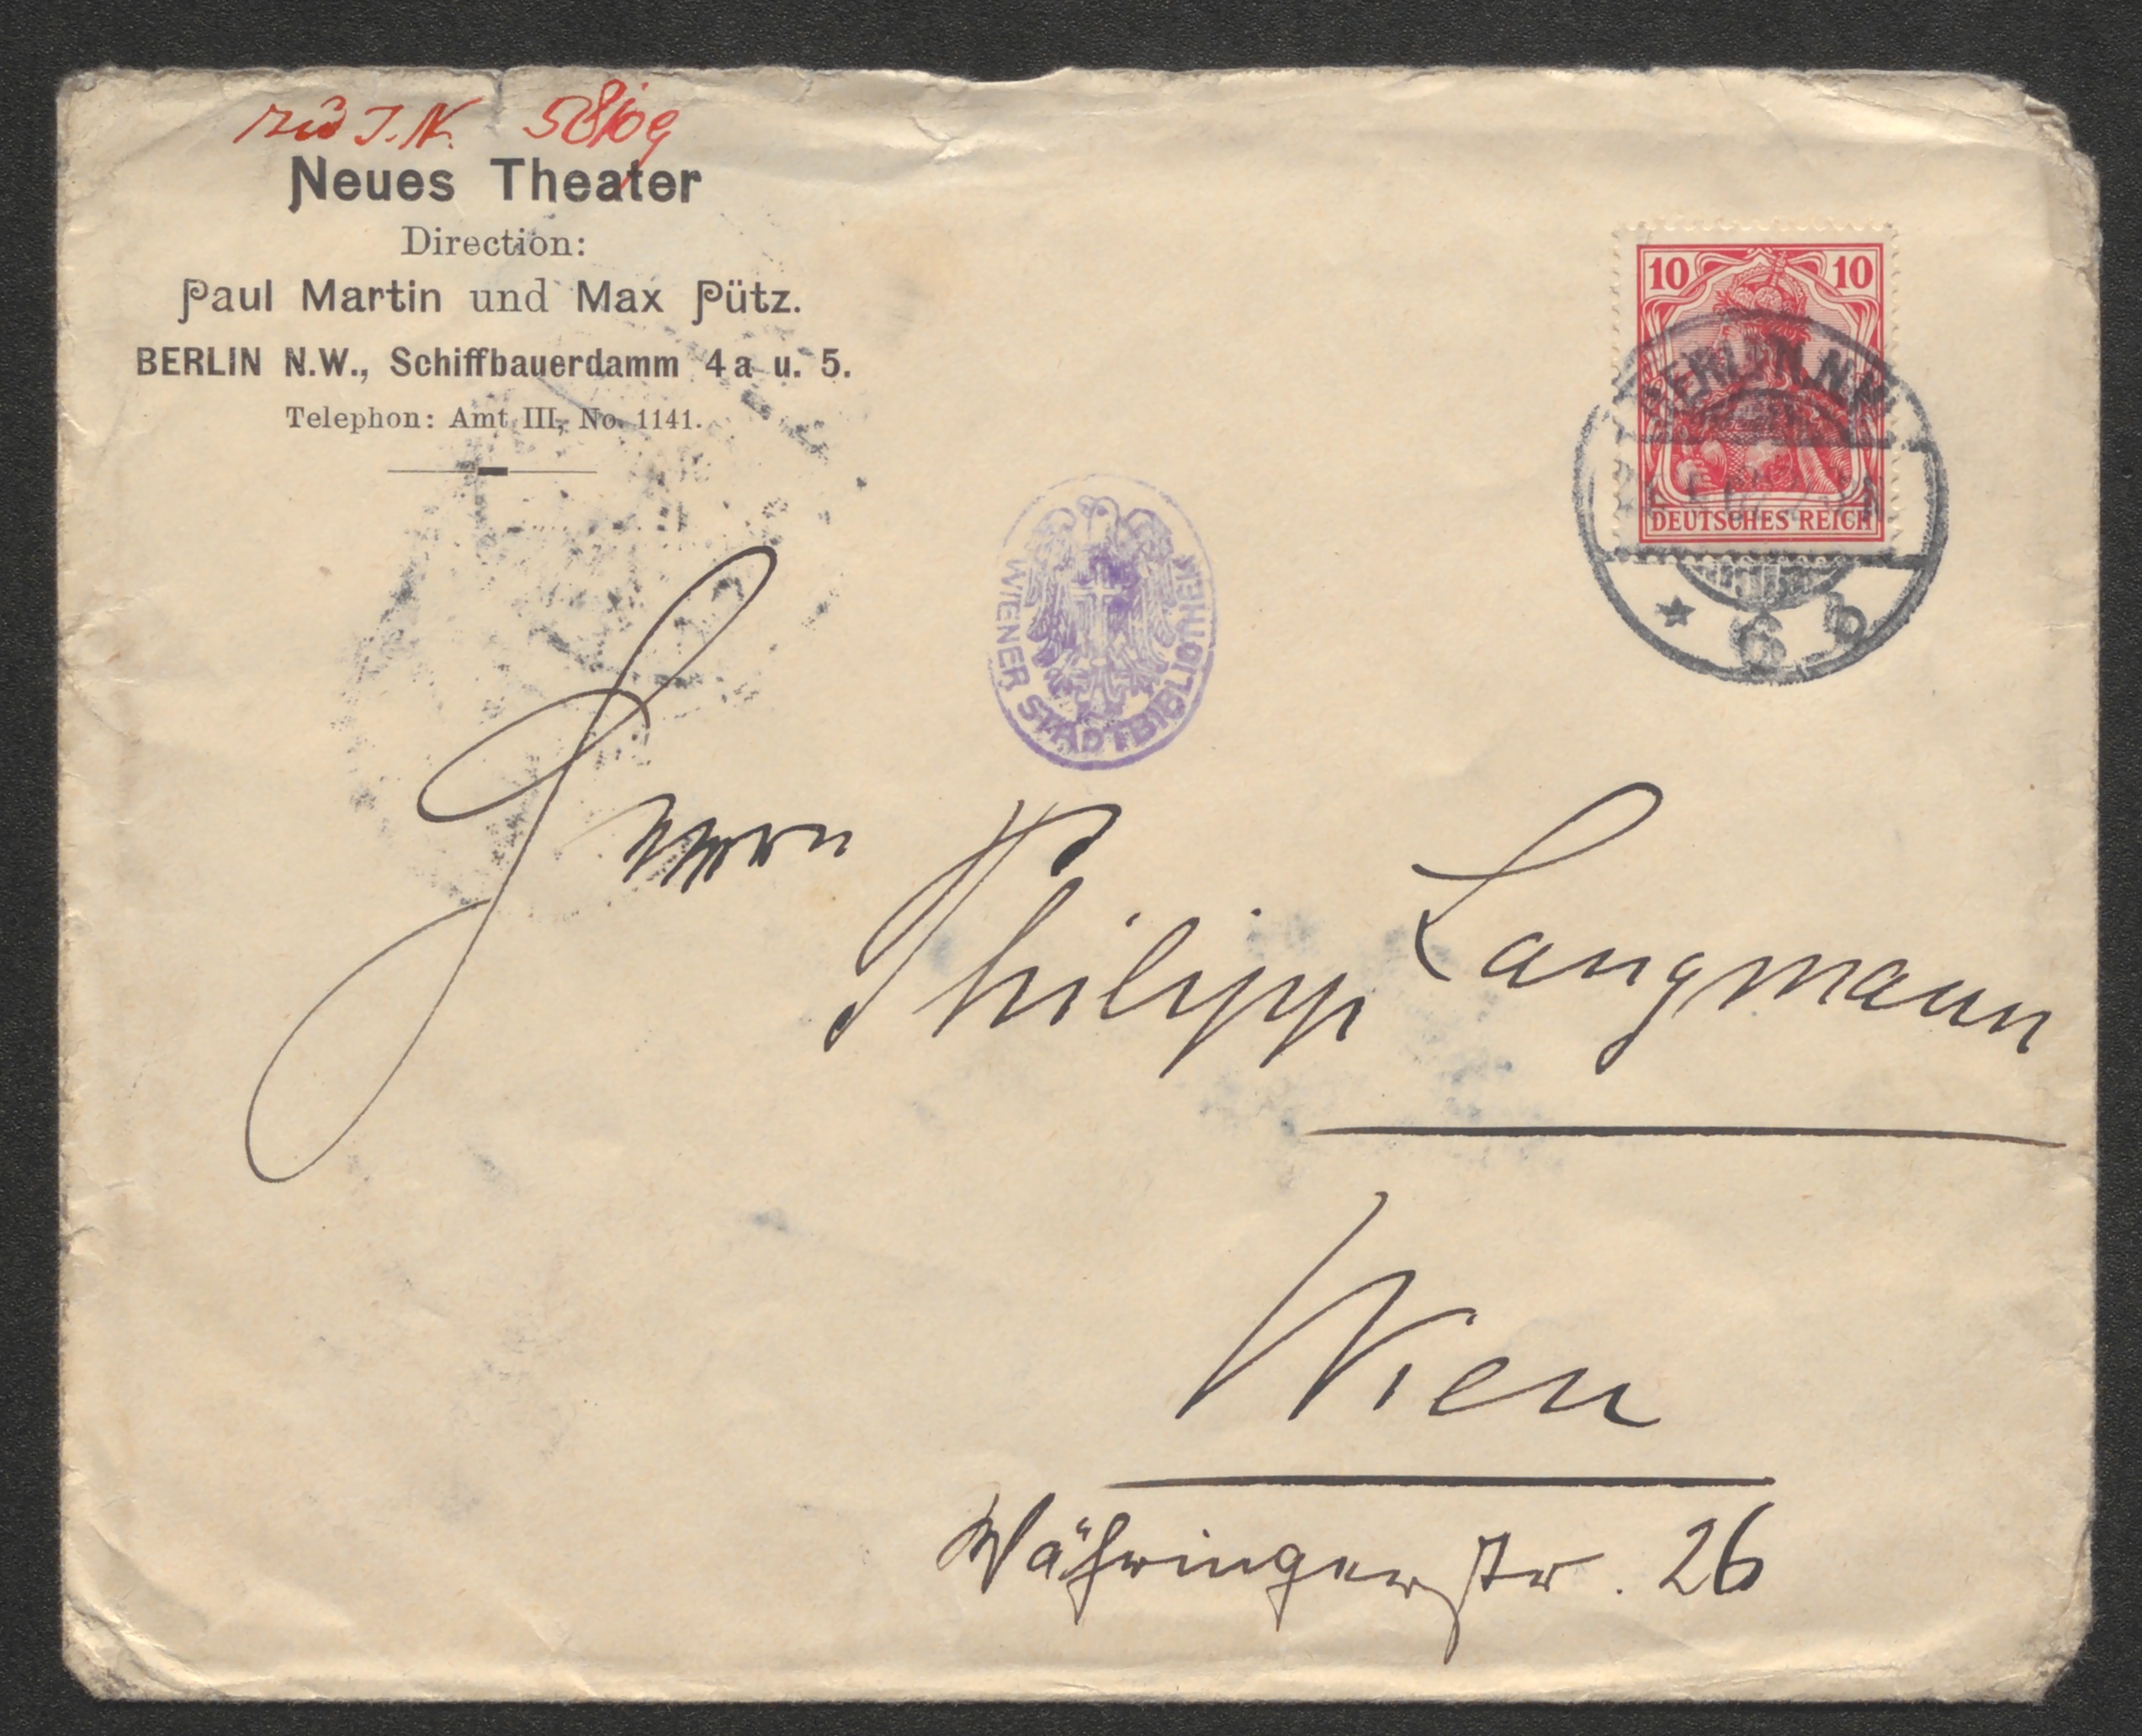 zu J.N. 58109
Neues Theater
Direction:
Paul Martin und Max Pütz.
BERLIN N.W., Schiffbauerdamm 4a u. 5.
Telephon: Amt III, No. 1141.
10 10
BERLIN, N.W.
DEUTSCHES REICH
* 6 b
WIENER STADTBIBLIOTHEK
Herrn
Philipp Langmann
Wien
Währingerstr. 26